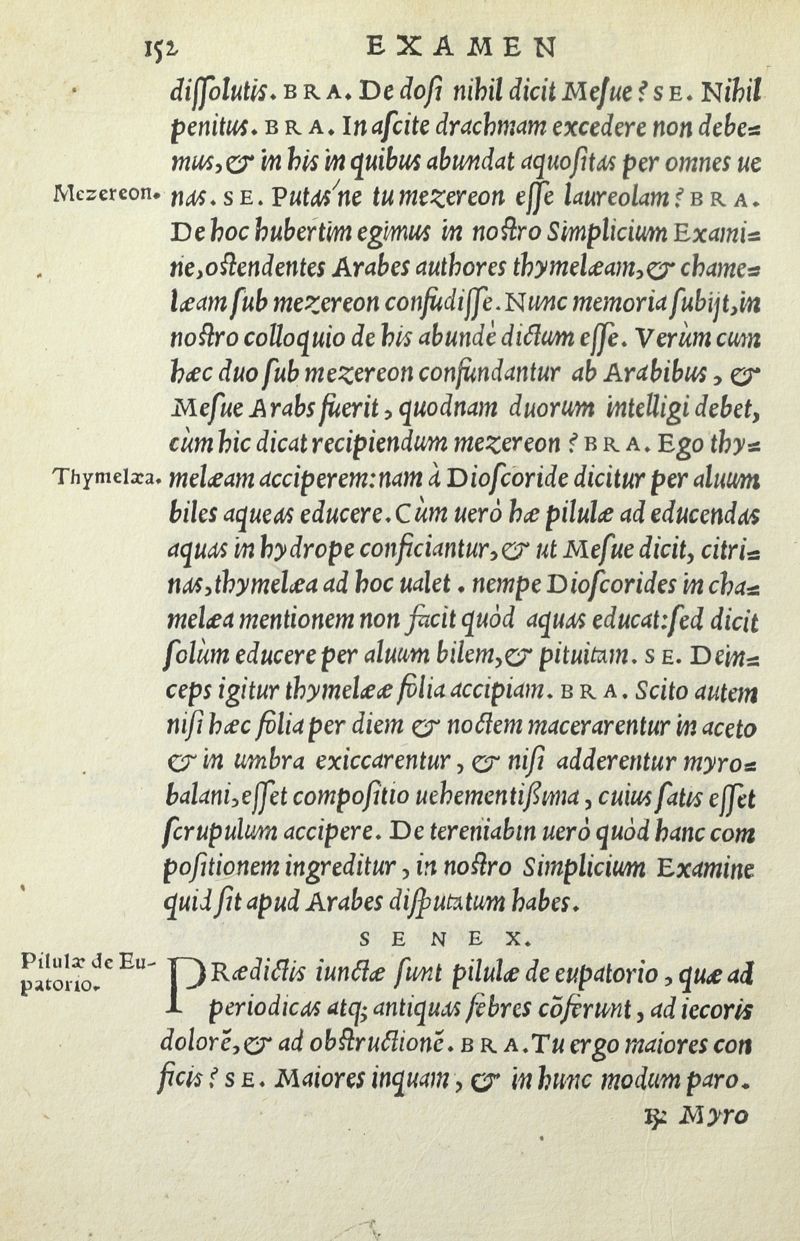 152 EXAMEN
diſſolutis. BRA. De doſi nihil dicit Meſue? SE. Nihil
penitus. BRA. In aſcite drachmam excedere non debe=
mus, & in his in quibus abundat aquoſitas per omnes ue
Mezereon. nas. SE. Putas'ne tu mezereon eſſe laureolam? BRA.
De hoc hubertim egimus in noſtro Simplicium Exami=
ne, oſtendentes Arabes authores thymelæam, & chame=
læam ſub mezereon confudiſſe. Nunc memoria ſubijt, in
noſtro colloquio de his abundè dictum eſſe. Verùm cum
hæc duo ſub mezereon confundantur ab Arabibus, &
Meſue Arabs fuerit, quodnam duorum intelligi debet,
cùm hic dicat recipiendum mezereon? BRA. Ego thy=
Thymelæa. melæam acciperem: nam à Dioſcoride dicitur per aluum
biles aqueas educere. Cùm uerò hæ pilulæ ad educendas
aquas in hydrope conficiantur, & ut Meſue dicit, citri=
nas, thymelæa ad hoc ualet. nempe Dioſcorides in cha=
melæa mentionem non facit quòd aquas educat: ſed dicit
ſolùm educere per aluum bilem, & pituitam. SE. Dein=
ceps igitur thymelææ folia accipiam. BRA. Scito autem
niſi hæc folia per diem & noctem macerarentur in aceto
& in umbra exiccarentur, & niſi adderentur myro=
balani, eſſet compoſitio uehementiſsima, cuius ſatis eſſet
ſcrupulum accipere. De tereniabin uerò quòd hanc com
poſitionem ingreditur, in noſtro Simplicium Examine
quid ſit apud Arabes diſputatum habes.
SENEX.
Pilulæ de Eu-
patorio.
PRædictis iunctæ ſunt pilulæ de eupatorio, quæ ad
periodicas atq; antiquas febres cõferunt, ad iecoris
dolorẽ, & ad obſtructionẽ. BRA. Tu ergo maiores con
ficis? SE. Maiores inquam, & in hunc modum paro.
℞ Myro